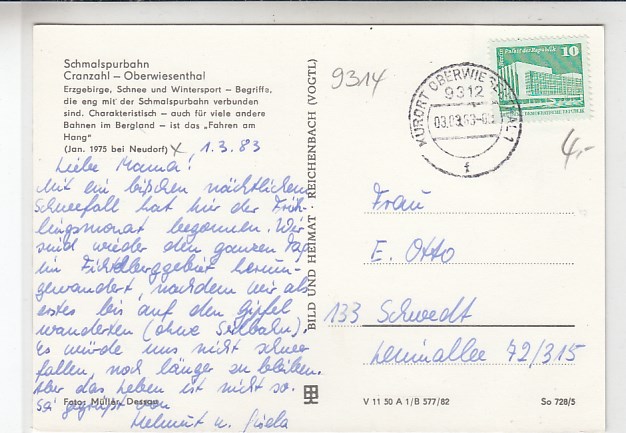 Schmalspurbahn
Cranzahl – Oberwiesenthal
Erzgebirge, Schnee und Wintersport – Begriffe,
die eng mit der Schmalspurbahn verbunden
sind. Charakteristisch – auch für viele andere
Bahnen im Bergland – ist das „Fahren am
Hang“
(Jan. 1975 bei Neudorf) x 1.3.83
Liebe Mama!
Mit ein bißchen nächtlichem
Schneefall hat hier der Früh-
lingsmonat begonnen. Wir
sind wieder den ganzen Tag
im Fichtelberggebiet herum-
gewandert, nachdem wir als
erstes bis auf den Gipfel
wanderten (ohne Seilbahn).
Es würde uns nicht schwer
fallen, noch länger zu bleiben.
Aber das Leben ist nicht so.
Sei gegrüßt von
Helmut u. Gisela
Foto: Müller, Dessau
BILD UND HEIMAT · REICHENBACH (VOGTL)
9314
KURORT OBERWIESENTHAL 1
9312
03.03.83
f
Berlin, Palast der Republik 10
4,-
Frau
E. Otto
133 Schwedt
Leninallee 72/315
V 11 50 A 1/B 577/82
So 728/5